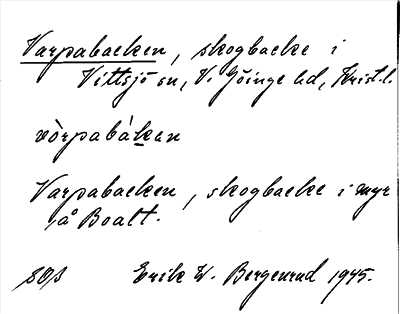 Varpabacken, skogbacke i
Vittsjö sn, V. Göinge hd, Krist. l.
vòrpabàkan
Varpabacken, skogbacke i myr
på Boalt.
Erik W. Bergenrud 1945.